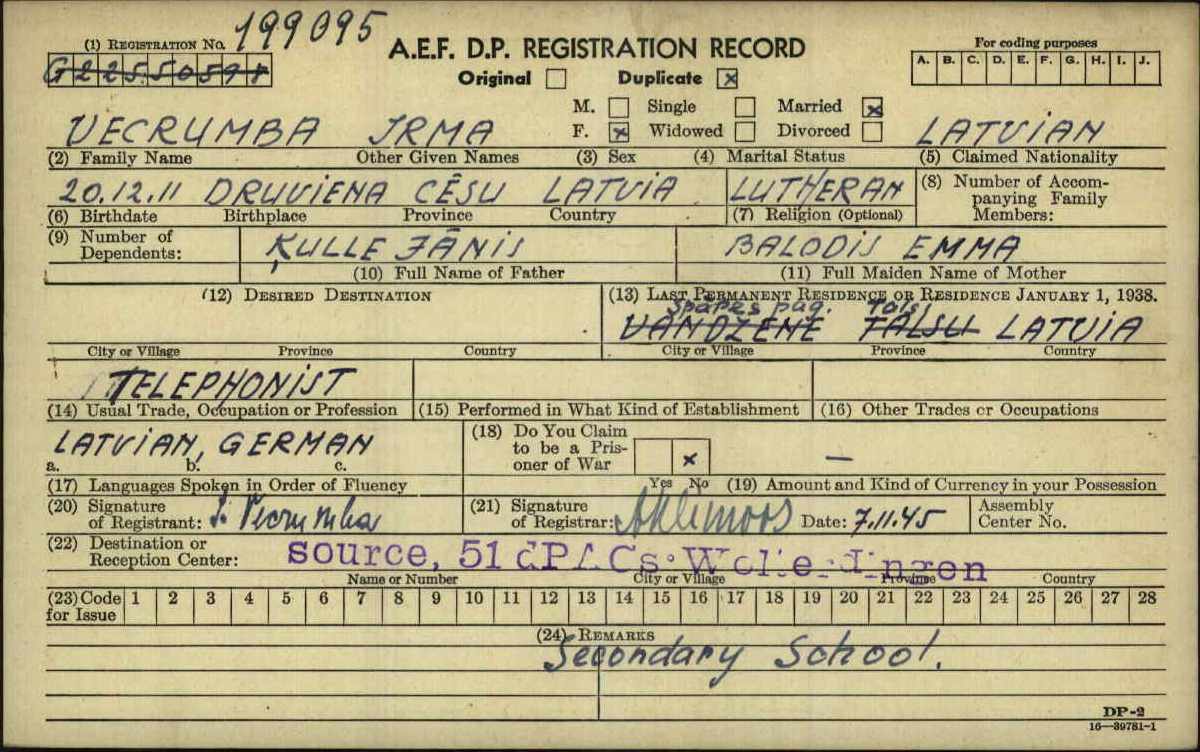 (1) REGISTRATION NO. 199095
A.E.F. D.P. REGISTRATION RECORD
For coding purposes
A. B. C. D. E. F. G. H. I. J.
Original Duplicate x
M. Single Married x
F. x Widowed Divorced
VECRUMBA IRMA LATVIAN
(2) Family Name Other Given Names (3) Sex (4) Marital Status (5) Claimed Nationality
20.12.11 DRUVIENA CĒSU LATVIA LUTHERAN (8) Number of Accompanying Family Members:
(6) Birthdate Birthplace Province Country (7) Religion (Optional)
(9) Number of Dependents: KULLE JĀNIS BALODIS EMMA
(10) Full Name of Father (11) Full Maiden Name of Mother
(12) DESIRED DESTINATION (13) LAST PERMANENT RESIDENCE OR RESIDENCE JANUARY 1, 1938.
pag. Talsi
VANDZENE TALSU LATVIA
City or Village Province Country City or Village Province Country
TELEPHONIST
(14) Usual Trade, Occupation or Profession (15) Performed in What Kind of Establishment (16) Other Trades or Occupations
LATVIAN, GERMAN (18) Do You Claim to be a Prisoner of War x —
a. b. c.
(17) Languages Spoken in Order of Fluency Yes No (19) Amount and Kind of Currency in your Possession
(20) Signature of Registrant: I. Vecrumba (21) Signature of Registrar: Date: 7.11.45 Assembly Center No.
(22) Destination or Reception Center: source, 51 DPACS: Wolterdingen
Name or Number City or Village Province Country
(23) Code for Issue 1 2 3 4 5 6 7 8 9 10 11 12 13 14 15 16 17 18 19 20 21 22 23 24 25 26 27 28
(24) REMARKS
Secondary School.
DP-2
16—39781-1